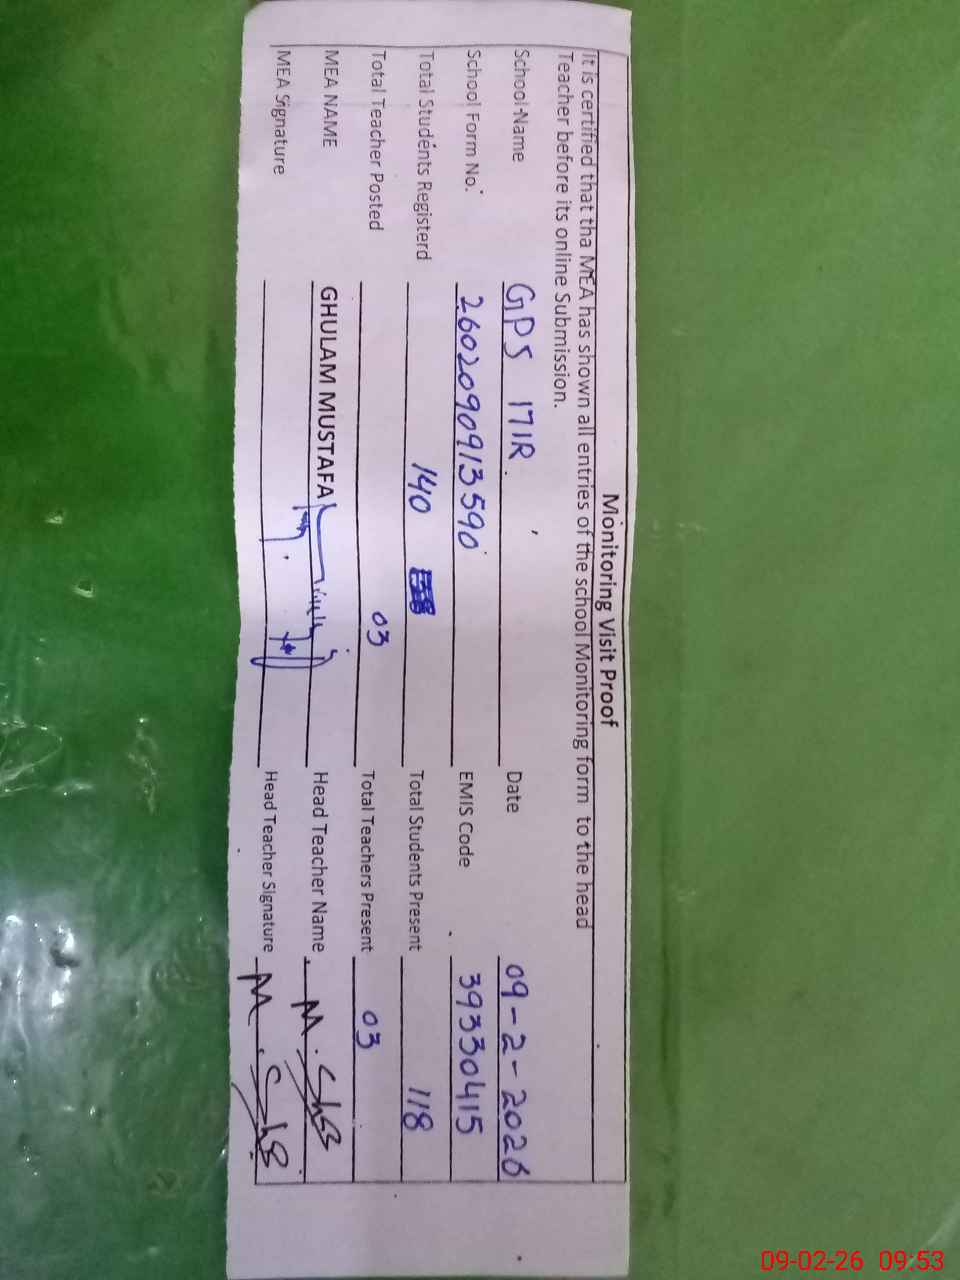 Monitoring Visit Proof
It is certified that tha MEA has shown all entries of the school Monitoring form to the head
Teacher before its online Submission.
School Name GPS 171R Date 09-2-2026
School Form No. 2602090913590 EMIS Code 39330415
Total Students Registerd 140 Total Students Present 118
Total Teacher Posted 03 Total Teachers Present 03
MEA NAME GHULAM MUSTAFA Head Teacher Name M.
MEA Signature Head Teacher Signature M.
09-02-26 09:53